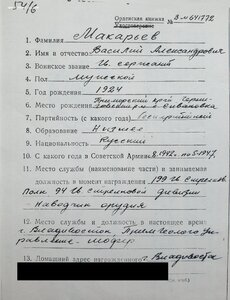 54/6
Орденская книжка № В-№641772
1. Фамилия Макарьев
2. Имя и отчество Василий Александрович
3. Воинское звание сержант
4. Пол мужской
5. Год рождения 1924
6. Место рождения Приморский край
7. Партийность (с какого года) беспартийный
8. Образование Низшее
9. Национальность Русский
10. С какого года в Советской Армии 1942 1947
11. Место службы (наименование части) и занимаемая
должность в момент награждения 199
полк 94 стрелковой дивизии
наводчик орудия
12. Место службы и должность в настоящее время
г. Владивосток,
шофер
13. Домашний адрес награжденного г. Владивосток